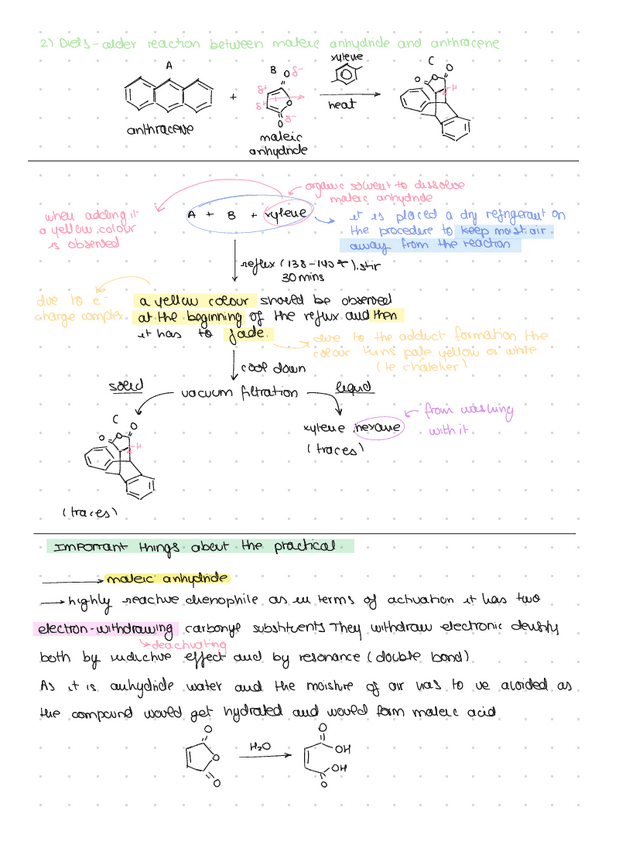 2) Diels-alder reaction between maleic anhydride and anthracene
A
anthracene
+
B
O δ-
δ+
δ+
O
O δ-
maleic
anhydride
xylene
heat
C
O
O
O
H
organic solvent to dissolve
maleic anhydride
when adding it
a yellow colour
is observed
A + B + xylene
it is placed a dry refrigerant on
the procedure to keep moist air
away from the reaction
reflux (138-140°C), stir
30 mins
due to e-
charge complex.
a yellow colour should be observed
at the beginning of the reflux and then
it has to fade.
due to the adduct formation the
colour turns pale yellow or white
(le chatelier)
cool down
solid
vacuum filtration
liquid
C
O
O
O
H
(traces)
xylene, hexane
(traces)
from washing
with it.
Important things about the practical
maleic anhydride
highly reactive dienophile as in terms of activation it has two
electron-withdrawing carbonyl substituents They withdraw electronic density
deactivating
both by inductive effect and by resonance (double bond).
As it is anhydride water and the moisture of air has to be avoided as
the compound would get hydrated and would form maleic acid
O
O
O
H₂O
O
OH
OH
O